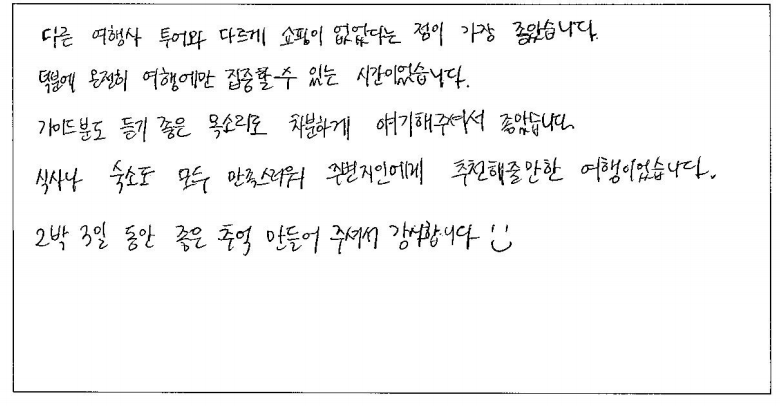 다른 여행사 투어와 다르게 쇼핑이 없었다는 점이 가장 좋았습니다.
덕분에 온전히 여행에만 집중할 수 있는 시간이었습니다.
가이드분도 듣기 좋은 목소리로 차분하게 얘기해주셔서 좋았습니다.
식사나 숙소도 모두 만족스러워 주변지인에게 추천해줄만한 여행이었습니다.
2박 3일 동안 좋은 추억 만들어 주셔서 감사합니다 :)